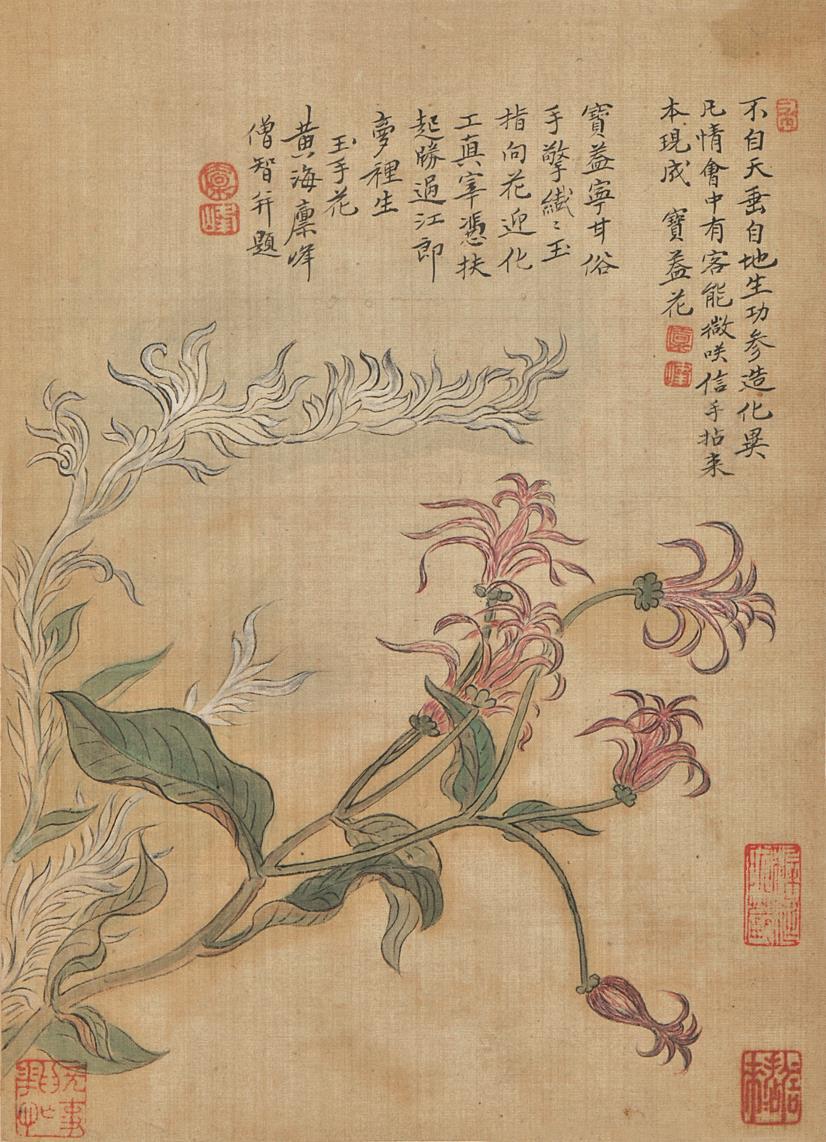 不自天垂自地生功参造化異
凡情會中有客能微咲信手拈来
本現成 寶葢花
寶葢寧甘俗
手擎纎〻玉
指向花迎化
工真宰憑扶
起勝過江郎
夢裡生
玉手花
黃海廩峰
僧智并題